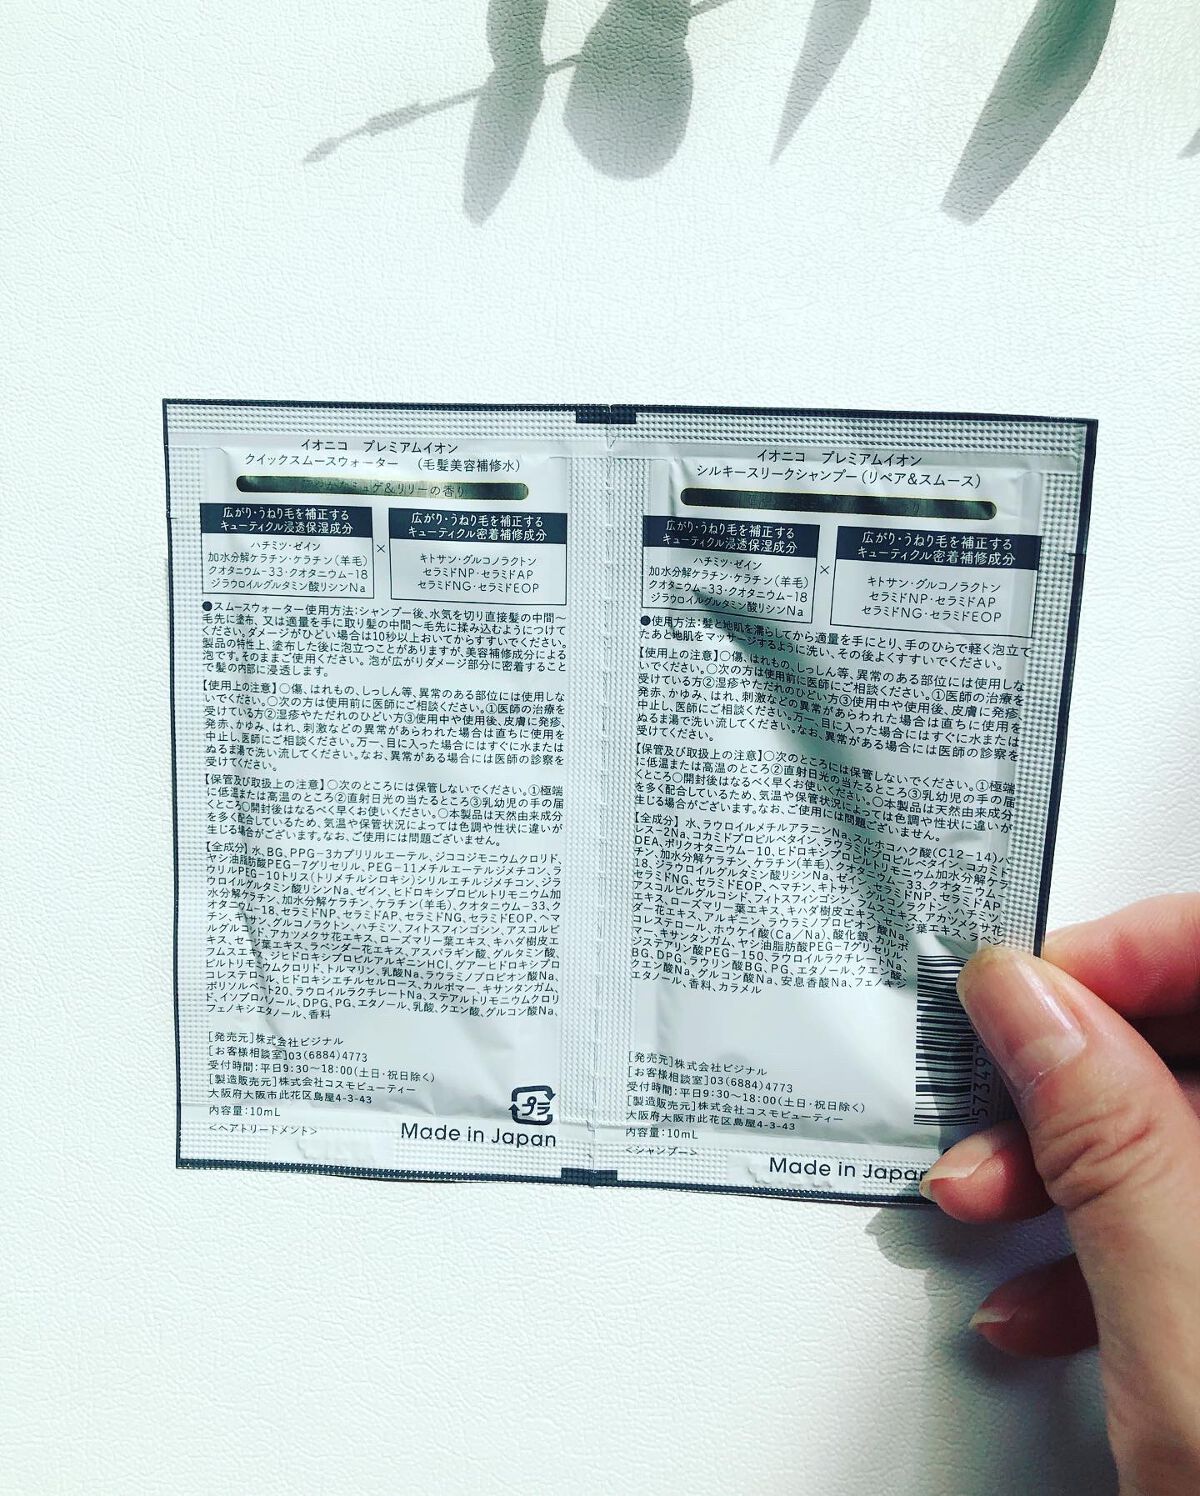 イオニコ プレミアムイオン
クイックスムースウォーター (毛髪美容補修水)
ミュゲ&リリーの香り
広がり・うねり毛を補正する
キューティクル浸透保湿成分
ハチミツ・ゼイン
加水分解ケラチン・ケラチン(羊毛)
クオタニウム-33・クオタニウム-18
ジラウロイルグルタミン酸リシンNa
×
広がり・うねり毛を補正する
キューティクル密着補修成分
キトサン・グルコノラクトン
セラミドNP・セラミドAP
セラミドNG・セラミドEOP
●スムースウォーター使用方法:シャンプー後、水気を切り直接髪の中間〜
毛先に塗布、又は適量を手に取り髪の中間〜毛先に揉み込むようにつけて
ください。ダメージがひどい場合は10秒以上おいてからすすいでください。
製品の特性上、塗布した後に泡立つことがありますが、美容補修成分による
泡です。そのままご使用ください。泡が広がりダメージ部分に密着すること
で髪の内部に浸透します。
【使用上の注意】○傷、はれもの、しっしん等、異常のある部位には使用しな
いでください。○次の方は使用前に医師にご相談ください。①医師の治療を
受けている方②湿疹やただれのひどい方③使用中や使用後、皮膚に発疹、
発赤、かゆみ、はれ、刺激などの異常があらわれた場合は直ちに使用を
中止し、医師にご相談ください。万一、目に入った場合にはすぐに水または
ぬるま湯で洗い流してください。なお、異常がある場合には医師の診察を
受けてください。
【保管及び取扱上の注意】○次のところには保管しないでください。①極端
に低温または高温のところ②直射日光の当たるところ③乳幼児の手の届
くところ○開封後はなるべく早くお使いください。○本製品は天然由来成分
を多く配合しているため、気温や保管状況によっては色調や性状に違いが
生じる場合がございます。なお、ご使用には問題ございません。
【全成分】水、BG、PPG-3カプリリルエーテル、ジココジモニウムクロリド、
ヤシ油脂肪酸PEG-7グリセリル、PEG-11メチルエーテルジメチコン、ラ
ウリルPEG-10トリス(トリメチルシロキシ)シリルエチルジメチコン、ジラ
ウロイルグルタミン酸リシンNa、ゼイン、ヒドロキシプロピルトリモニウム加
水分解ケラチン、加水分解ケラチン、ケラチン(羊毛)、クオタニウム-33、ク
オタニウム-18、セラミドNP、セラミドAP、セラミドNG、セラミドEOP、ヘマ
チン、キトサン、グルコノラクトン、ハチミツ、フィトスフィンゴシン、アスコルビ
ルグルコシド、アカツメクサ花エキス、ローズマリー葉エキス、キハダ樹皮エ
キス、セージ葉エキス、ラベンダー花エキス、アスパラギン酸、グルタミン酸、
フムスエキス、ジヒドロキシプロピルアルギニンHCl、グアーヒドロキシプロ
ピルトリモニウムクロリド、トルマリン、乳酸Na、ラウラミノプロピオン酸Na、
コレステロール、ヒドロキシエチルセルロース、カルボマー、キサンタンガム、
ポリソルベート20、ラウロイルラクチレートNa、ステアルトリモニウムクロリ
ド、イソプロパノール、DPG、PG、エタノール、乳酸、クエン酸、グルコン酸Na、
フェノキシエタノール、香料
[発売元]株式会社ビジナル
[お客様相談室]03(6884)4773
受付時間:平日9:30〜18:00(土日・祝日除く)
[製造販売元]株式会社コスモビューティー
大阪府大阪市此花区島屋4-3-43
内容量:10mL
<ヘアトリートメント>
プラ
Made in Japan
イオニコ プレミアムイオン
シルキースリークシャンプー(リペア&スムース)
広がり・うねり毛を補正する
キューティクル浸透保湿成分
ハチミツ・ゼイン
加水分解ケラチン・ケラチン(羊毛)
クオタニウム-33・クオタニウム-18
ジラウロイルグルタミン酸リシンNa
×
広がり・うねり毛を補正する
キューティクル密着補修成分
キトサン・グルコノラクトン
セラミドNP・セラミドAP
セラミドNG・セラミドEOP
●使用方法:髪と地肌を濡らしてから適量を手にとり、手のひらで軽く泡立て
たあと地肌をマッサージするように洗い、その後よくすすいでください。
【使用上の注意】○傷、はれもの、しっしん等、異常のある部位には使用しな
いでください。○次の方は使用前に医師にご相談ください。①医師の治療を
受けている方②湿疹やただれのひどい方③使用中や使用後、皮膚に発疹、
発赤、かゆみ、はれ、刺激などの異常があらわれた場合は直ちに使用を
中止し、医師にご相談ください。万一、目に入った場合にはすぐに水または
ぬるま湯で洗い流してください。なお、異常がある場合には医師の診察を
受けてください。
【保管及び取扱上の注意】○次のところには保管しないでください。①極端
に低温または高温のところ②直射日光の当たるところ③乳幼児の手の届
くところ○開封後はなるべく早くお使いください。○本製品は天然由来成分
を多く配合しているため、気温や保管状況によっては色調や性状に違いが
生じる場合がございます。なお、ご使用には問題ございません。
【全成分】水、ラウロイルメチルアラニンNa、スルホコハク酸(C12-14)パ
レス-2Na、コカミドプロピルベタイン、ラウラミドプロピルベタイン、コカミド
DEA、ポリクオタニウム-10、ヒドロキシプロピルトリモニウム加水分解ケラ
チン、加水分解ケラチン、ケラチン(羊毛)、クオタニウム-33、クオタニウム-
18、ジラウロイルグルタミン酸リシンNa、ゼイン、セラミドNP、セラミドAP、
セラミドNG、セラミドEOP、ヘマチン、キトサン、グルコノラクトン、ハチミツ、
アスコルビルグルコシド、フィトスフィンゴシン、フムスエキス、アカツメクサ花
エキス、ローズマリー葉エキス、キハダ樹皮エキス、セージ葉エキス、ラベン
ダー花エキス、アルギニン、ラウラミノプロピオン酸Na、
コレステロール、ホウケイ酸(Ca/Na)、酸化銀、カルボ
マー、キサンタンガム、ヤシ油脂肪酸PEG-7グリセリル、
ジステアリン酸PEG-150、ラウロイルラクチレートNa、
BG、DPG、ラウリン酸BG、PG、エタノール、クエン酸、
クエン酸Na、グルコン酸Na、安息香酸Na、フェノキシ
エタノール、香料、カラメル
[発売元]株式会社ビジナル
[お客様相談室]03(6884)4773
受付時間:平日9:30〜18:00(土日・祝日除く)
[製造販売元]株式会社コスモビューティー
大阪府大阪市此花区島屋4-3-43
内容量:10mL
<シャンプー>
Made in Japan